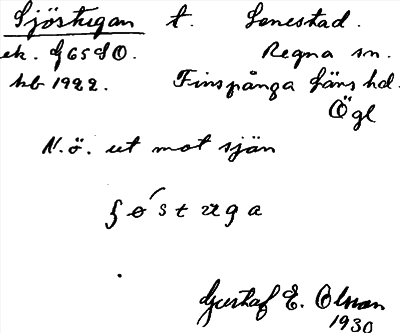 Sjöstugan t. Senestad.
ek. J 65 S O. Regna sn.
kb 1922. Finspånga läns hd.
Ögl
N.ö. ut mot sjön
Gustaf E. Olsson
1930